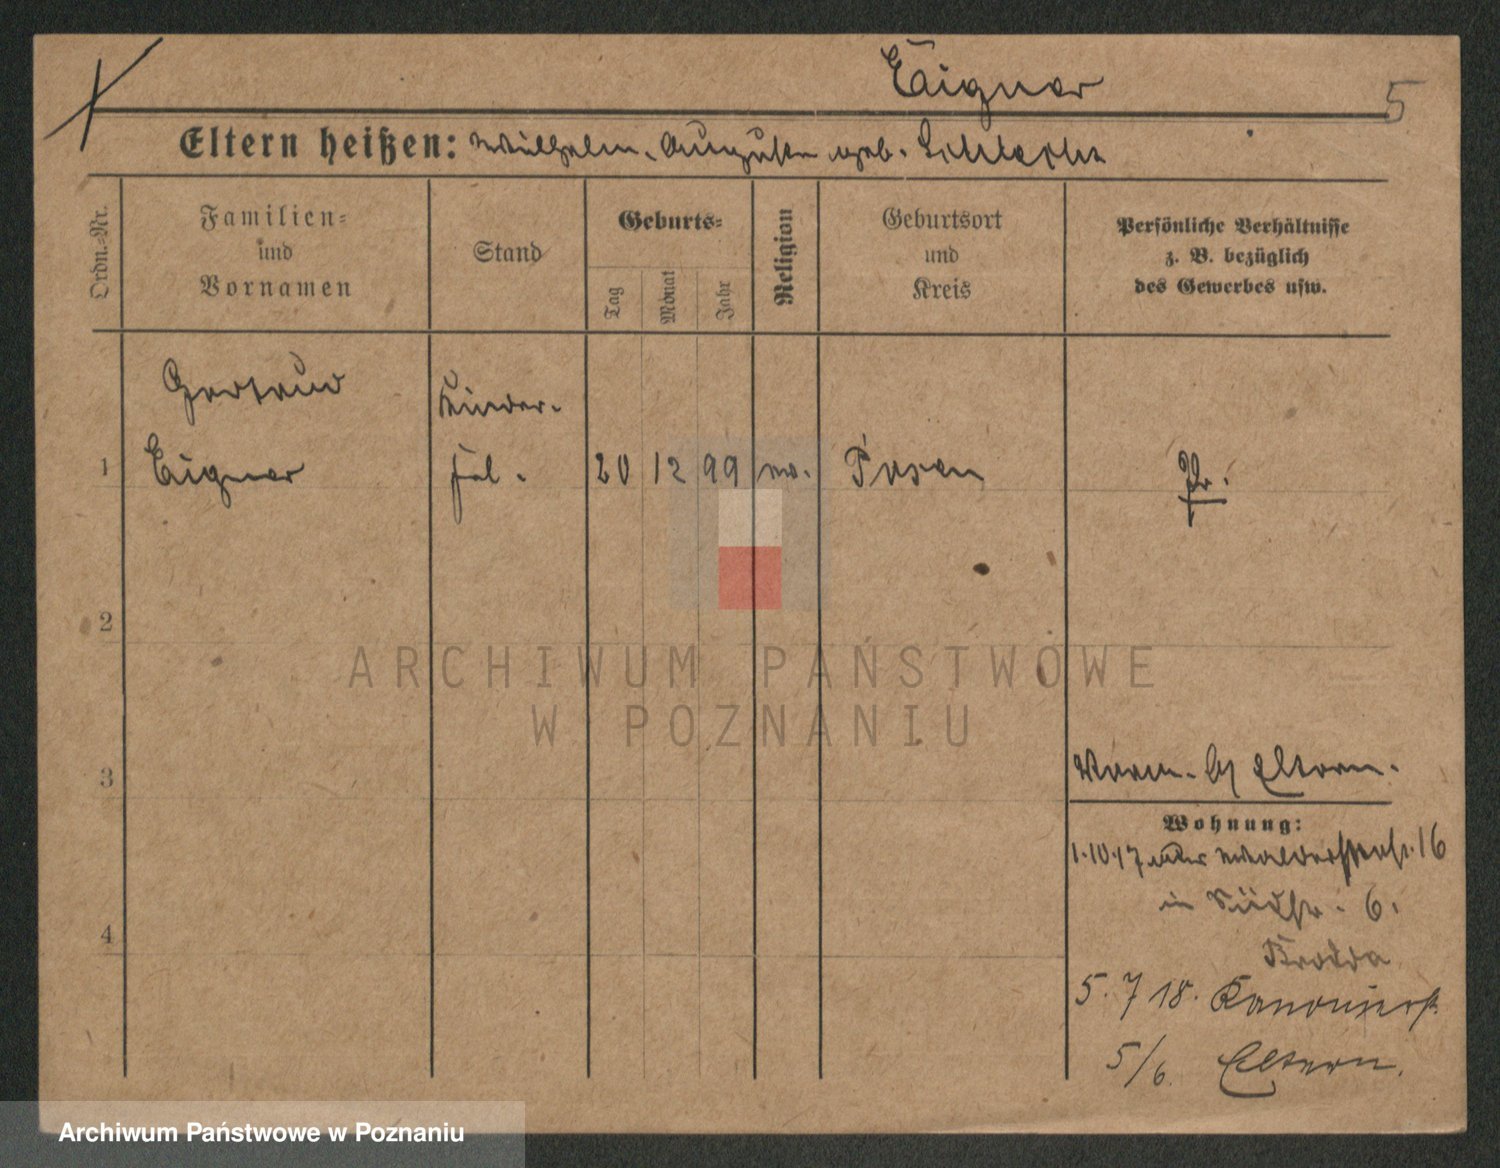 Eigner
5
Eltern heißen: Wilhelm. Auguste geb.
Ordn.-Nr.
Familien-
und
Vornamen
Stand
Geburts-
Tag
Monat
Jahr
Religion
Geburtsort
und
Kreis
Persönliche Verhältnisse
z. B. bezüglich
des Gewerbes usw.
Gertrud
Kinder-
1 Eigner frl. 20 12 99 ev. Posen Pr.
2
ARCHIWUM PAŃSTWOWE
W POZNANIU
3
Vorm. b/ Eltern.
Wohnung:
1.10.17 16
in Südstr. 6.
4
5.7 18. Kanonierst.
5/6. Eltern.
Archiwum Państwowe w Poznaniu